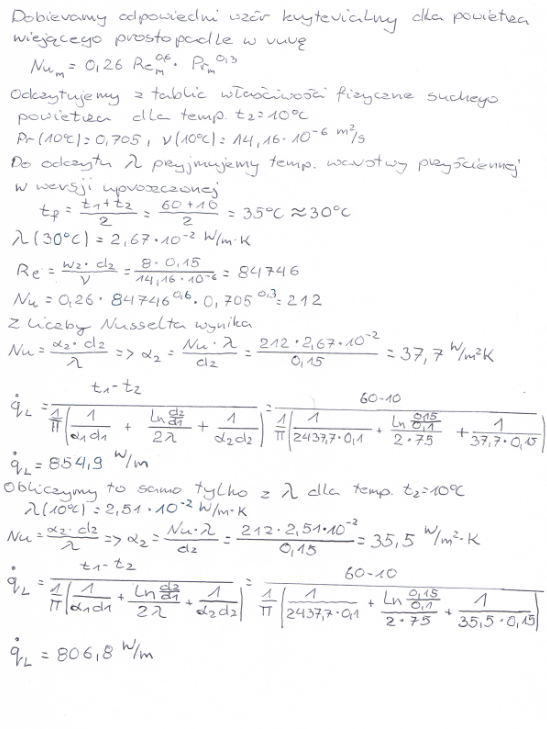 Dobieramy odpowiedni wzór kryterialny dla powietrza
wiejącego prostopadle w rurę
Nu_m = 0,26 Re_m^0,6 · Pr_m^0,3
Odczytujemy z tablic właściwości fizyczne suchego
powietrza dla temp. t₂=10°C
Pr(10°C)=0,705, ν(10°C)=14,16·10⁻⁶ m²/s
Do odczytu λ przyjmujemy temp. warstwy przyściennej
w wersji uproszczonej
t_f = (t₁+t₂)/2 = (60+10)/2 = 35°C ≈ 30°C
λ(30°C) = 2,67·10⁻² W/m·K
Re = (w₂·d₂)/ν = (8·0,15)/(14,16·10⁻⁶) = 84746
Nu = 0,26·84746^0,6·0,705^0,3 = 212
Z liczby Nusselta wynika
Nu = (α₂·d₂)/λ => α₂ = (Nu·λ)/d₂ = (212·2,67·10⁻²)/0,15 = 37,7 W/m²K
q̇_L = (t₁-t₂)/(1/π(1/(α₁d₁) + (ln d₂/d₁)/(2λ) + 1/(α₂d₂))) = (60-10)/(1/π(1/(2437,7·0,1) + (ln 0,15/0,1)/(2·75) + 1/(37,7·0,15)))
q̇_L = 854,9 W/m
Obliczymy to samo tylko z λ dla temp. t₂=10°C
λ(10°C) = 2,51·10⁻² W/m·K
Nu = (α₂·d₂)/λ => α₂ = (Nu·λ)/d₂ = (212·2,51·10⁻²)/0,15 = 35,5 W/m²·K
q̇_L = (t₁-t₂)/(1/π(1/(α₁d₁) + (ln d₂/d₁)/(2λ) + 1/(α₂d₂))) = (60-10)/(1/π(1/(2437,7·0,1) + (ln 0,15/0,1)/(2·75) + 1/(35,5·0,15)))
q̇_L = 806,8 W/m